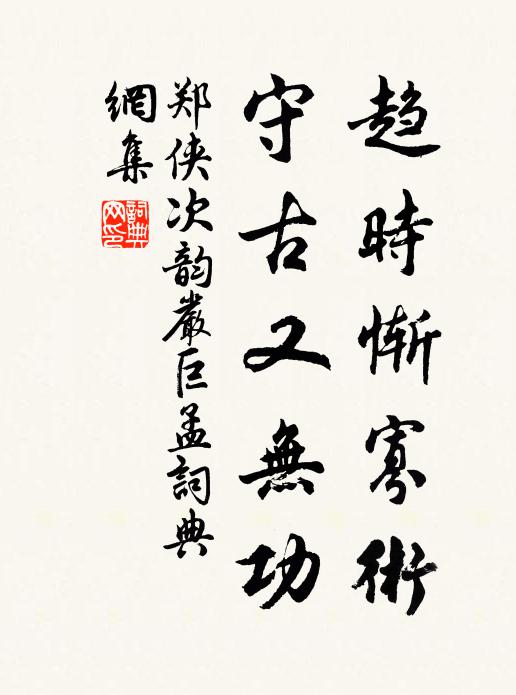 趋時慚寡術
守古又無功
郑侠次韵嚴巨孟詞典
網集
詞典
网印